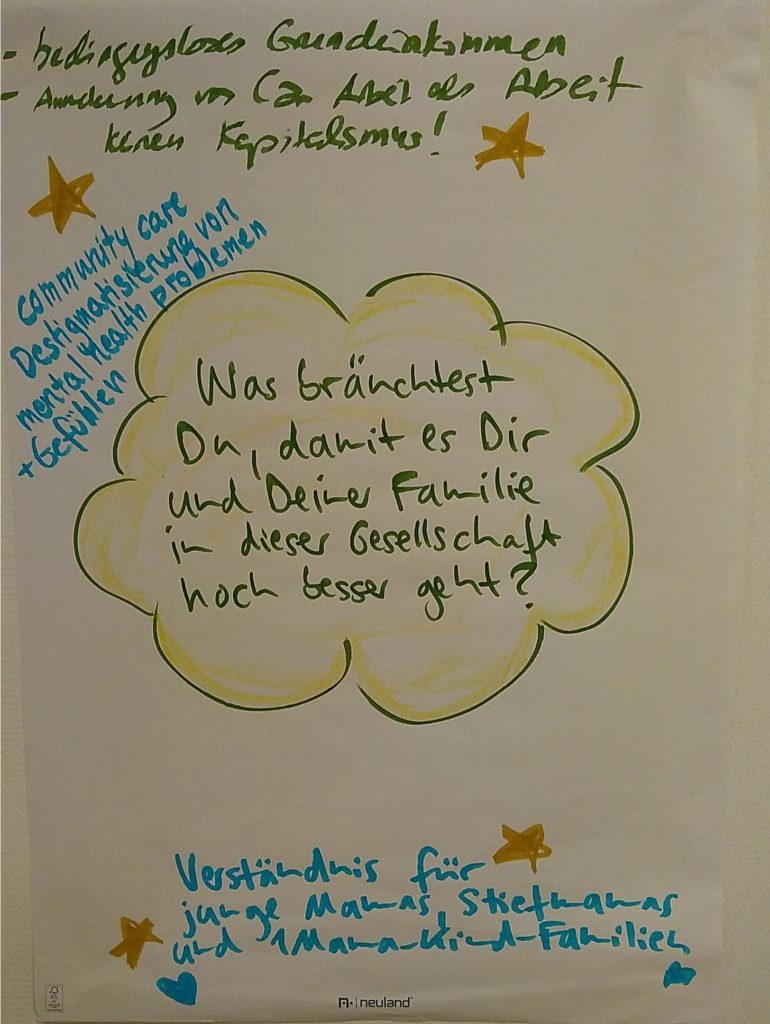 - bedingungsloses Grundeinkommen
- Anerkennung von Care Arbeit als Arbeit
keinen Kapitalismus!
community care
Destigmatisierung von
mental health problemen
+ Gefühlen
Was bräuchtest
Du, damit es Dir
und Deiner Familie
in dieser Gesellschaft
noch besser geht?
Verständnis für
junge Mamas, Stiefmamas
und 1Mama-Kind-Familien
neuland